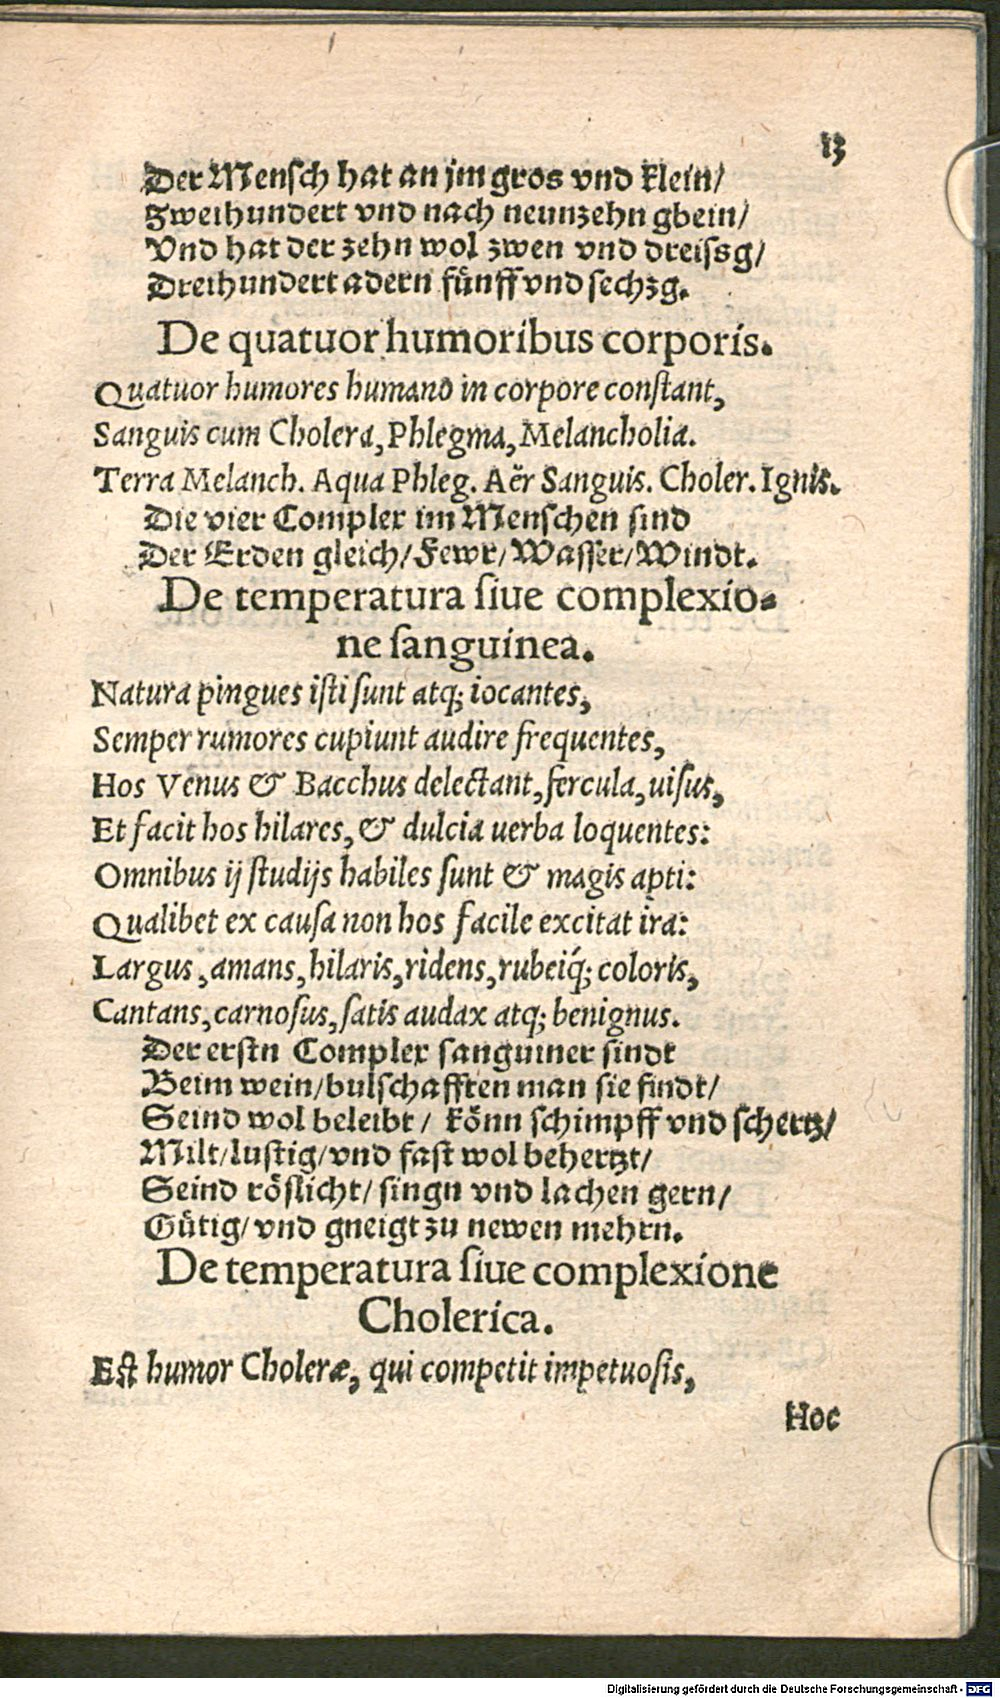 13
Der Mensch hat an jm gros vnd klein/
Zweihundert vnd nach neunzehn gbein/
Vnd hat der zehn wol zwen vnd dreissg/
Dreihundert adern fünff vnd sechzg.
De quatuor humoribus corporis.
Quatuor humores humano in corpore conſtant,
Sanguis cum Cholera, Phlegma, Melancholia.
Terra Melanch. Aqua Phleg. Aër Sanguis. Choler. Ignis.
Die vier Complex im Menschen sind
Der Erden gleich/Fewr/Wasser/Windt.
De temperatura ſiue complexio-
ne ſanguinea.
Natura pingues iſti ſunt atq; iocantes,
Semper rumores cupiunt audire frequentes,
Hos Venus & Bacchus delectant, fercula, uiſus,
Et facit hos hilares, & dulcia uerba loquentes:
Omnibus ij ſtudijs habiles ſunt & magis apti:
Qualibet ex cauſa non hos facile excitat ira:
Largus, amans, hilaris, ridens, rubeiq́; coloris,
Cantans, carnoſus, ſatis audax atq; benignus.
Der erstn Complex sanguiner sindt
Beim wein/bulschafften man sie findt/
Seind wol beleibt/ könn schimpff vnd schertz/
Milt/lustig/vnd fast wol behertzt/
Seind röslicht/ singn vnd lachen gern/
Gütig/vnd gneigt zu newen mehrn.
De temperatura ſiue complexione
Cholerica.
Eſt humor Choleræ, qui competit impetuoſis,
Hoc
Digitalisierung gefördert durch die Deutsche Forschungsgemeinschaft - DFG